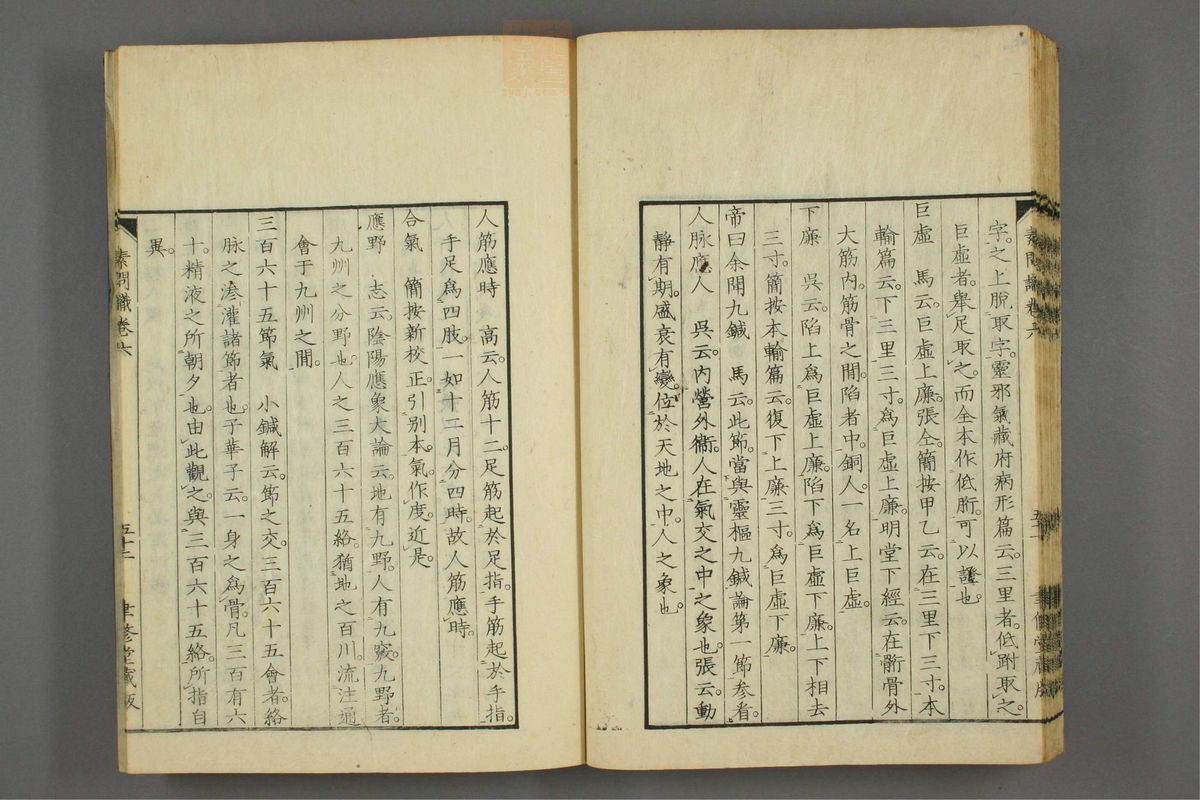 字。之上脫取字。靈邪氣藏府病形篇云。三里者。低跗取之。
巨虛者。舉足取之。而全本作低胻。可以證也。
巨虛　馬云。巨虛上廉。張仝。簡按甲乙云。在三里下三寸。本
輸篇云。下三里三寸。爲巨虛上廉。明堂下經云。在䯒骨外
大筋内。筋骨之間陷者中。銅人。一名上巨虛。
下廉　吳云。陷上爲巨虛上廉。陷下爲巨虛下廉。上下相去
三寸。簡按本輸篇云。復下上廉三寸。爲巨虛下廉。
帝曰余聞九鍼　馬云。此節。當與靈樞九鍼論第一節參看。
人脉應人　吳云。内營外衞。人在氣交之中之象也。張云。動
靜有期。盛衰有變。位於天地之中。人之象也。
人筋應時　高云。人筋十二。足筋起於足指。手筋起於手指。
手足爲四肢。一如十二月分四時。故人筋應時。
合氣　簡按新校正。引別本。氣。作度。近是。
應野　志云。陰陽應象大論云。地有九野。人有九竅。九野者。
九州之分野也。人之三百六十五絡。猶地之百川。流注通
會于九州之間。
三百六十五節氣　小鍼解云。節之交。三百六十五會者。絡
脉之滲灌諸節者也。子華子云。一身之爲骨。凡三百有六
十。精液之所朝夕也。由此觀之。與三百六十五絡。所指自
異。
素問識卷六
五十二
聿修堂藏版